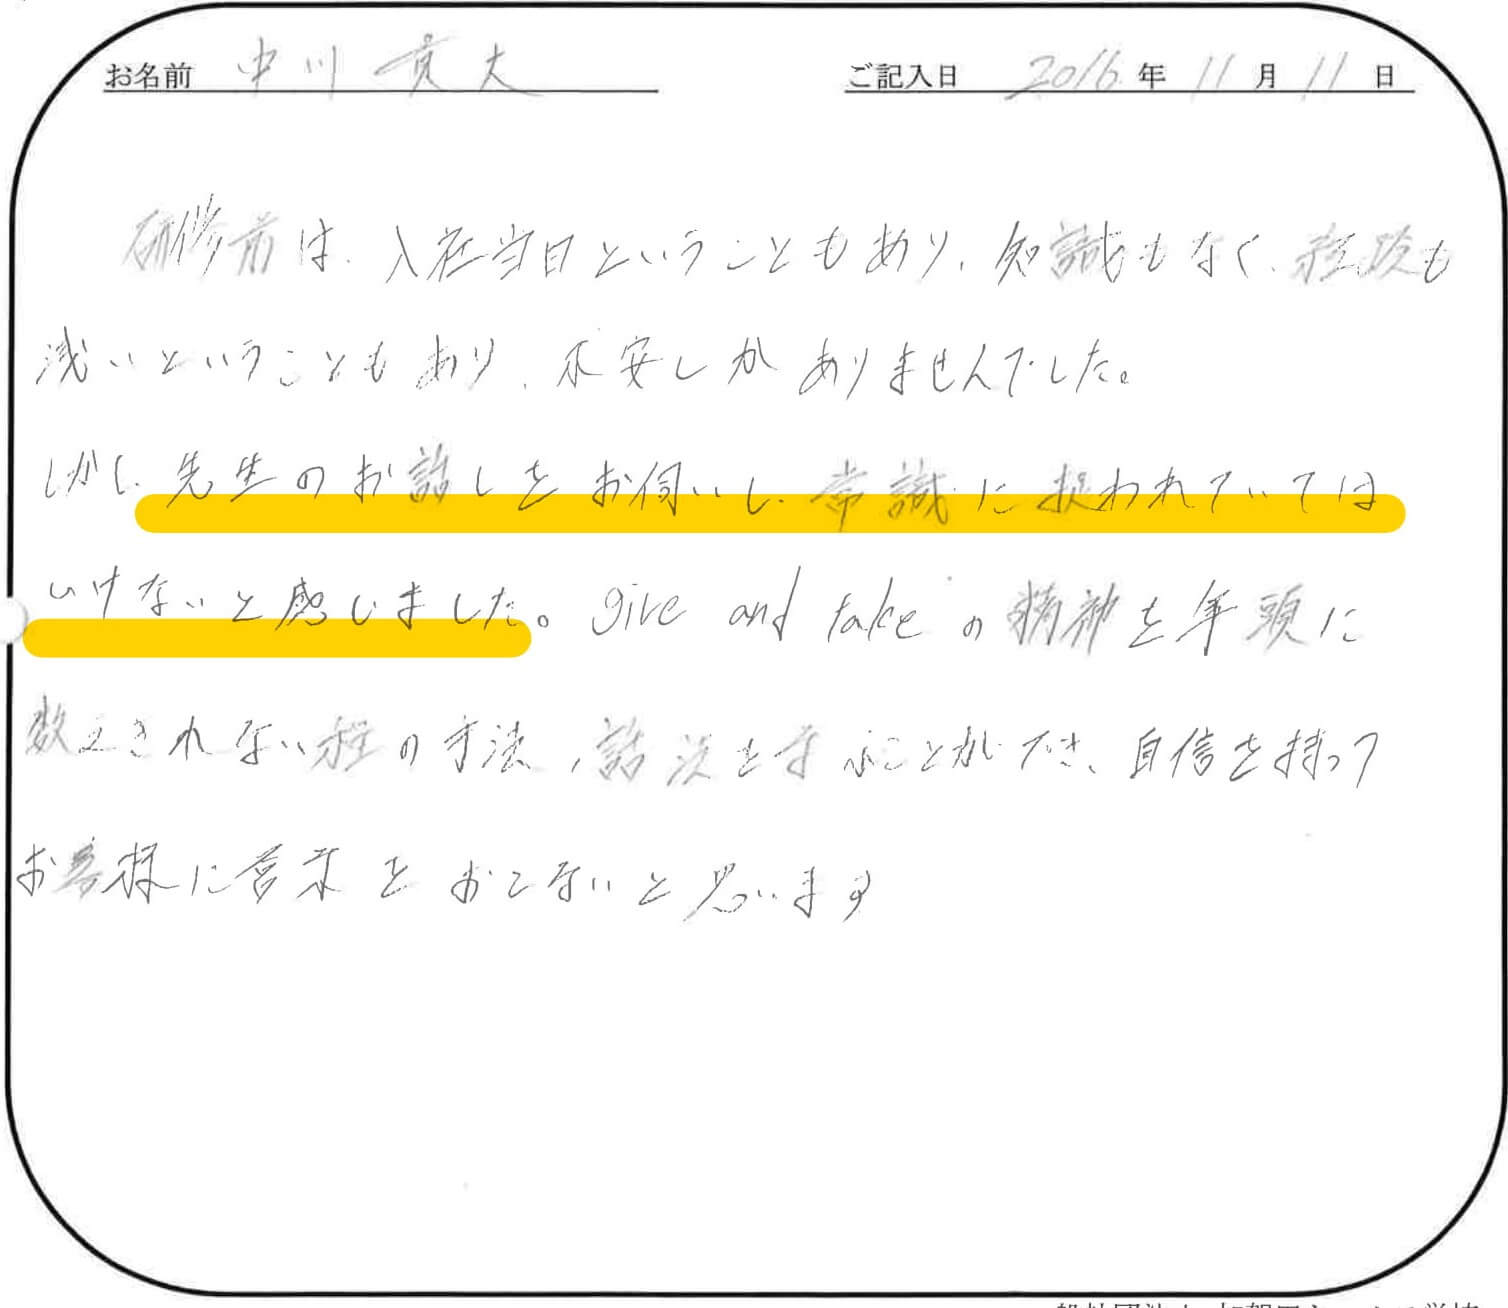 お名前 中川 貴大 ご記入日 2016年 11月 11日
研修前は、入社当日ということもあり、知識もなく、経験も
浅いということもあり、不安しかありませんでした。
しかし、先生のお話しをお伺いし、常識に捉われていては
いけないと感じました。give and takeの精神を年頭に
数えきれない程の方法、話法を学ぶことができ、自信を持って
お客様に営業をおこないと思います